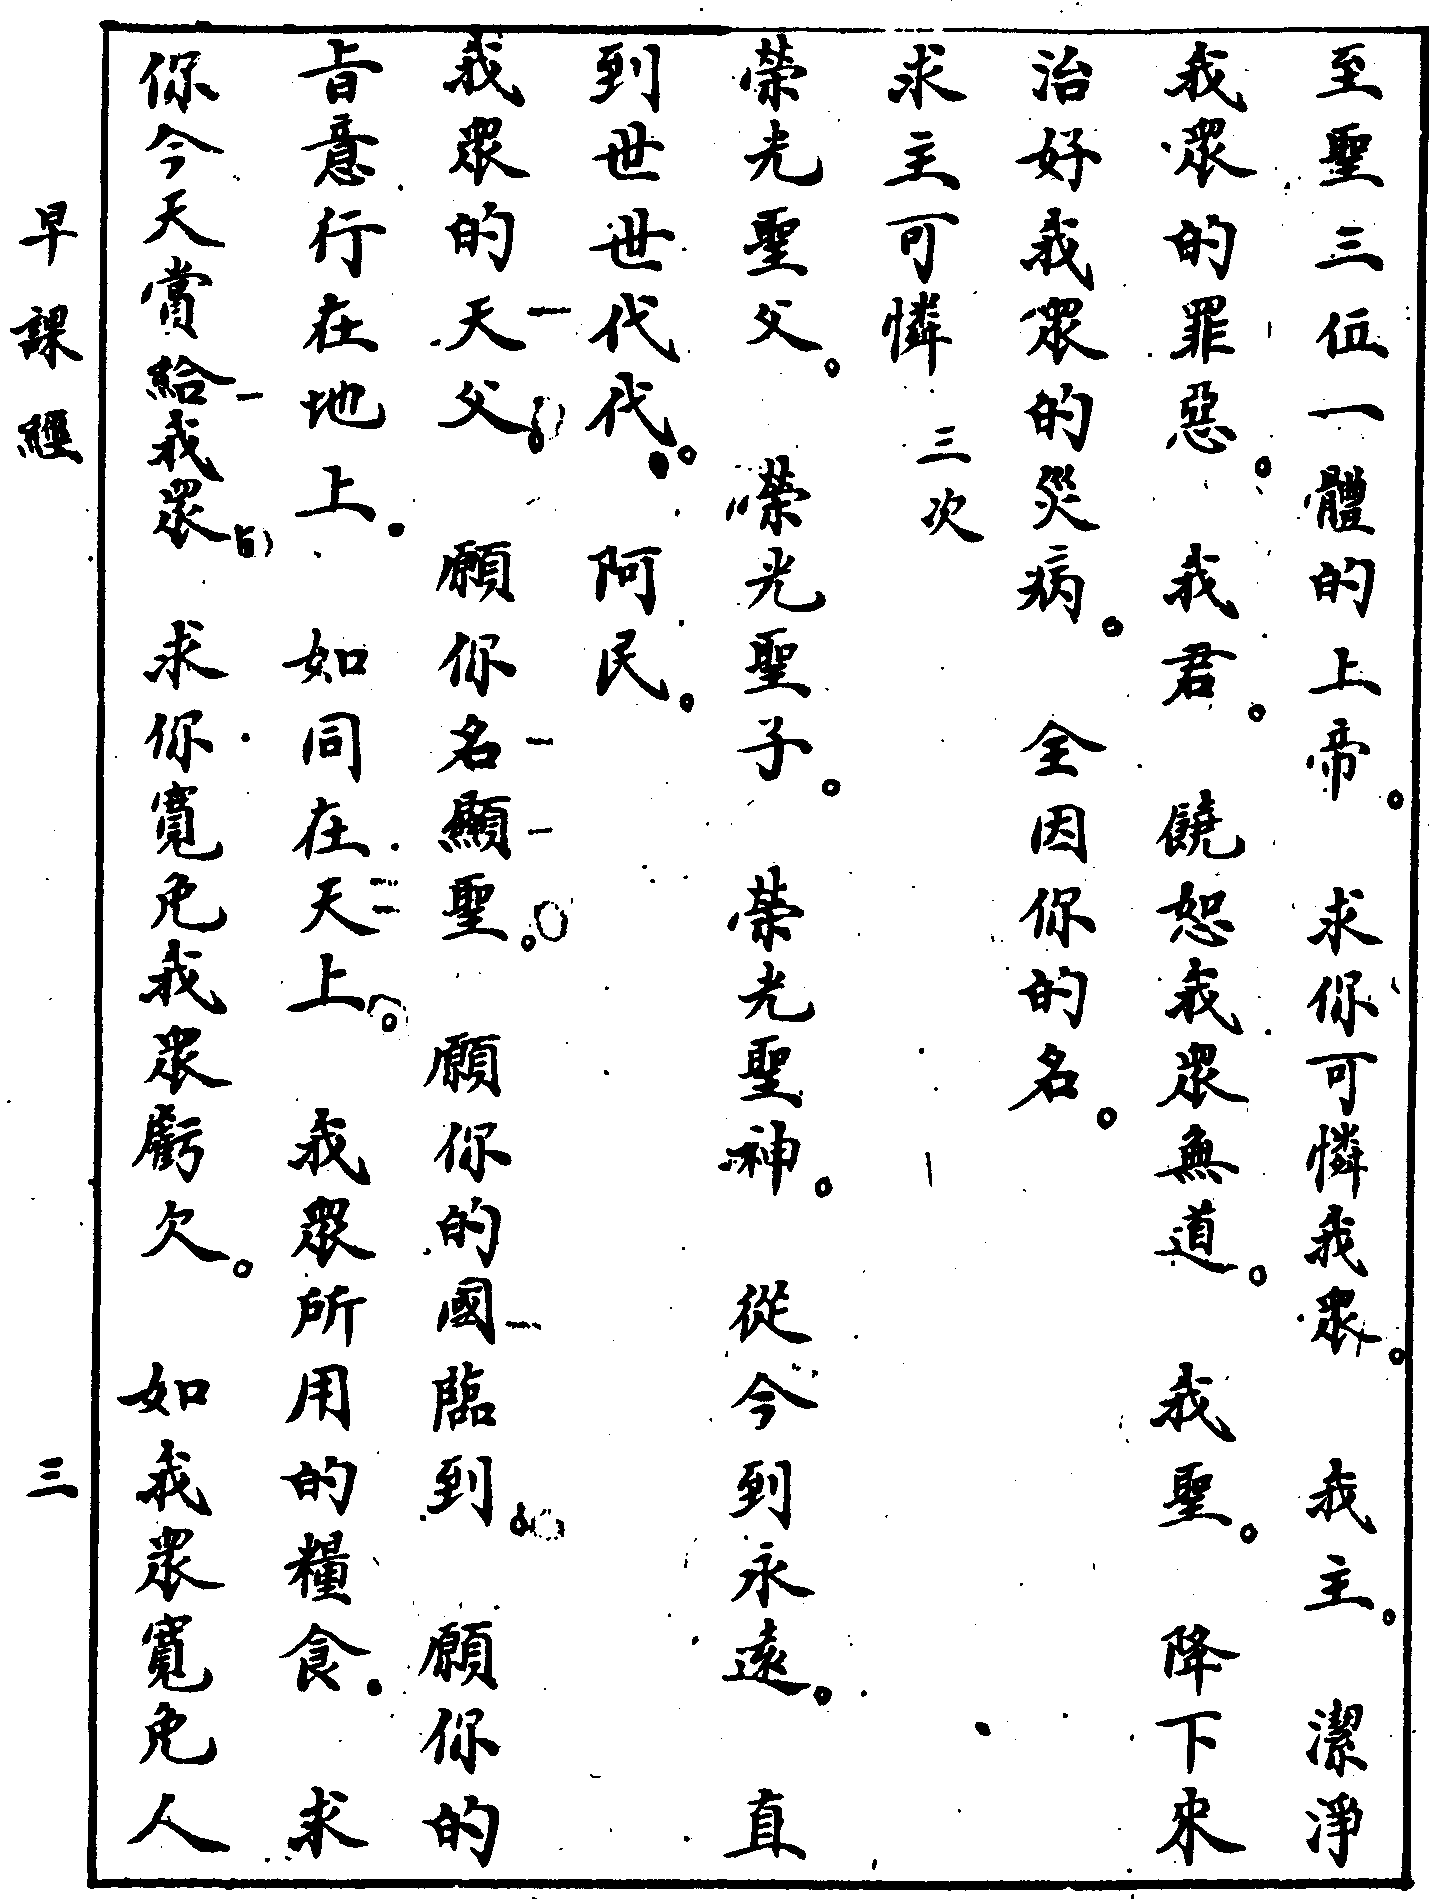 至聖三位一體的上帝。求你可憐我衆。我主。潔淨
我衆的罪惡。我君。饒恕我衆無道。我聖。降下來
治好我衆的災病。全因你的名。
求主可憐 三次
榮光聖父。榮光聖子。榮光聖神。從今到永遠。直
到世世代代。阿民。
我衆的天父。願你名顯聖。願你的國臨到。願你的
旨意行在地上。如同在天上。我衆所用的糧食。求
你今天賞給我衆 求你寬免我衆虧欠。如我衆寬免人
早課經 三